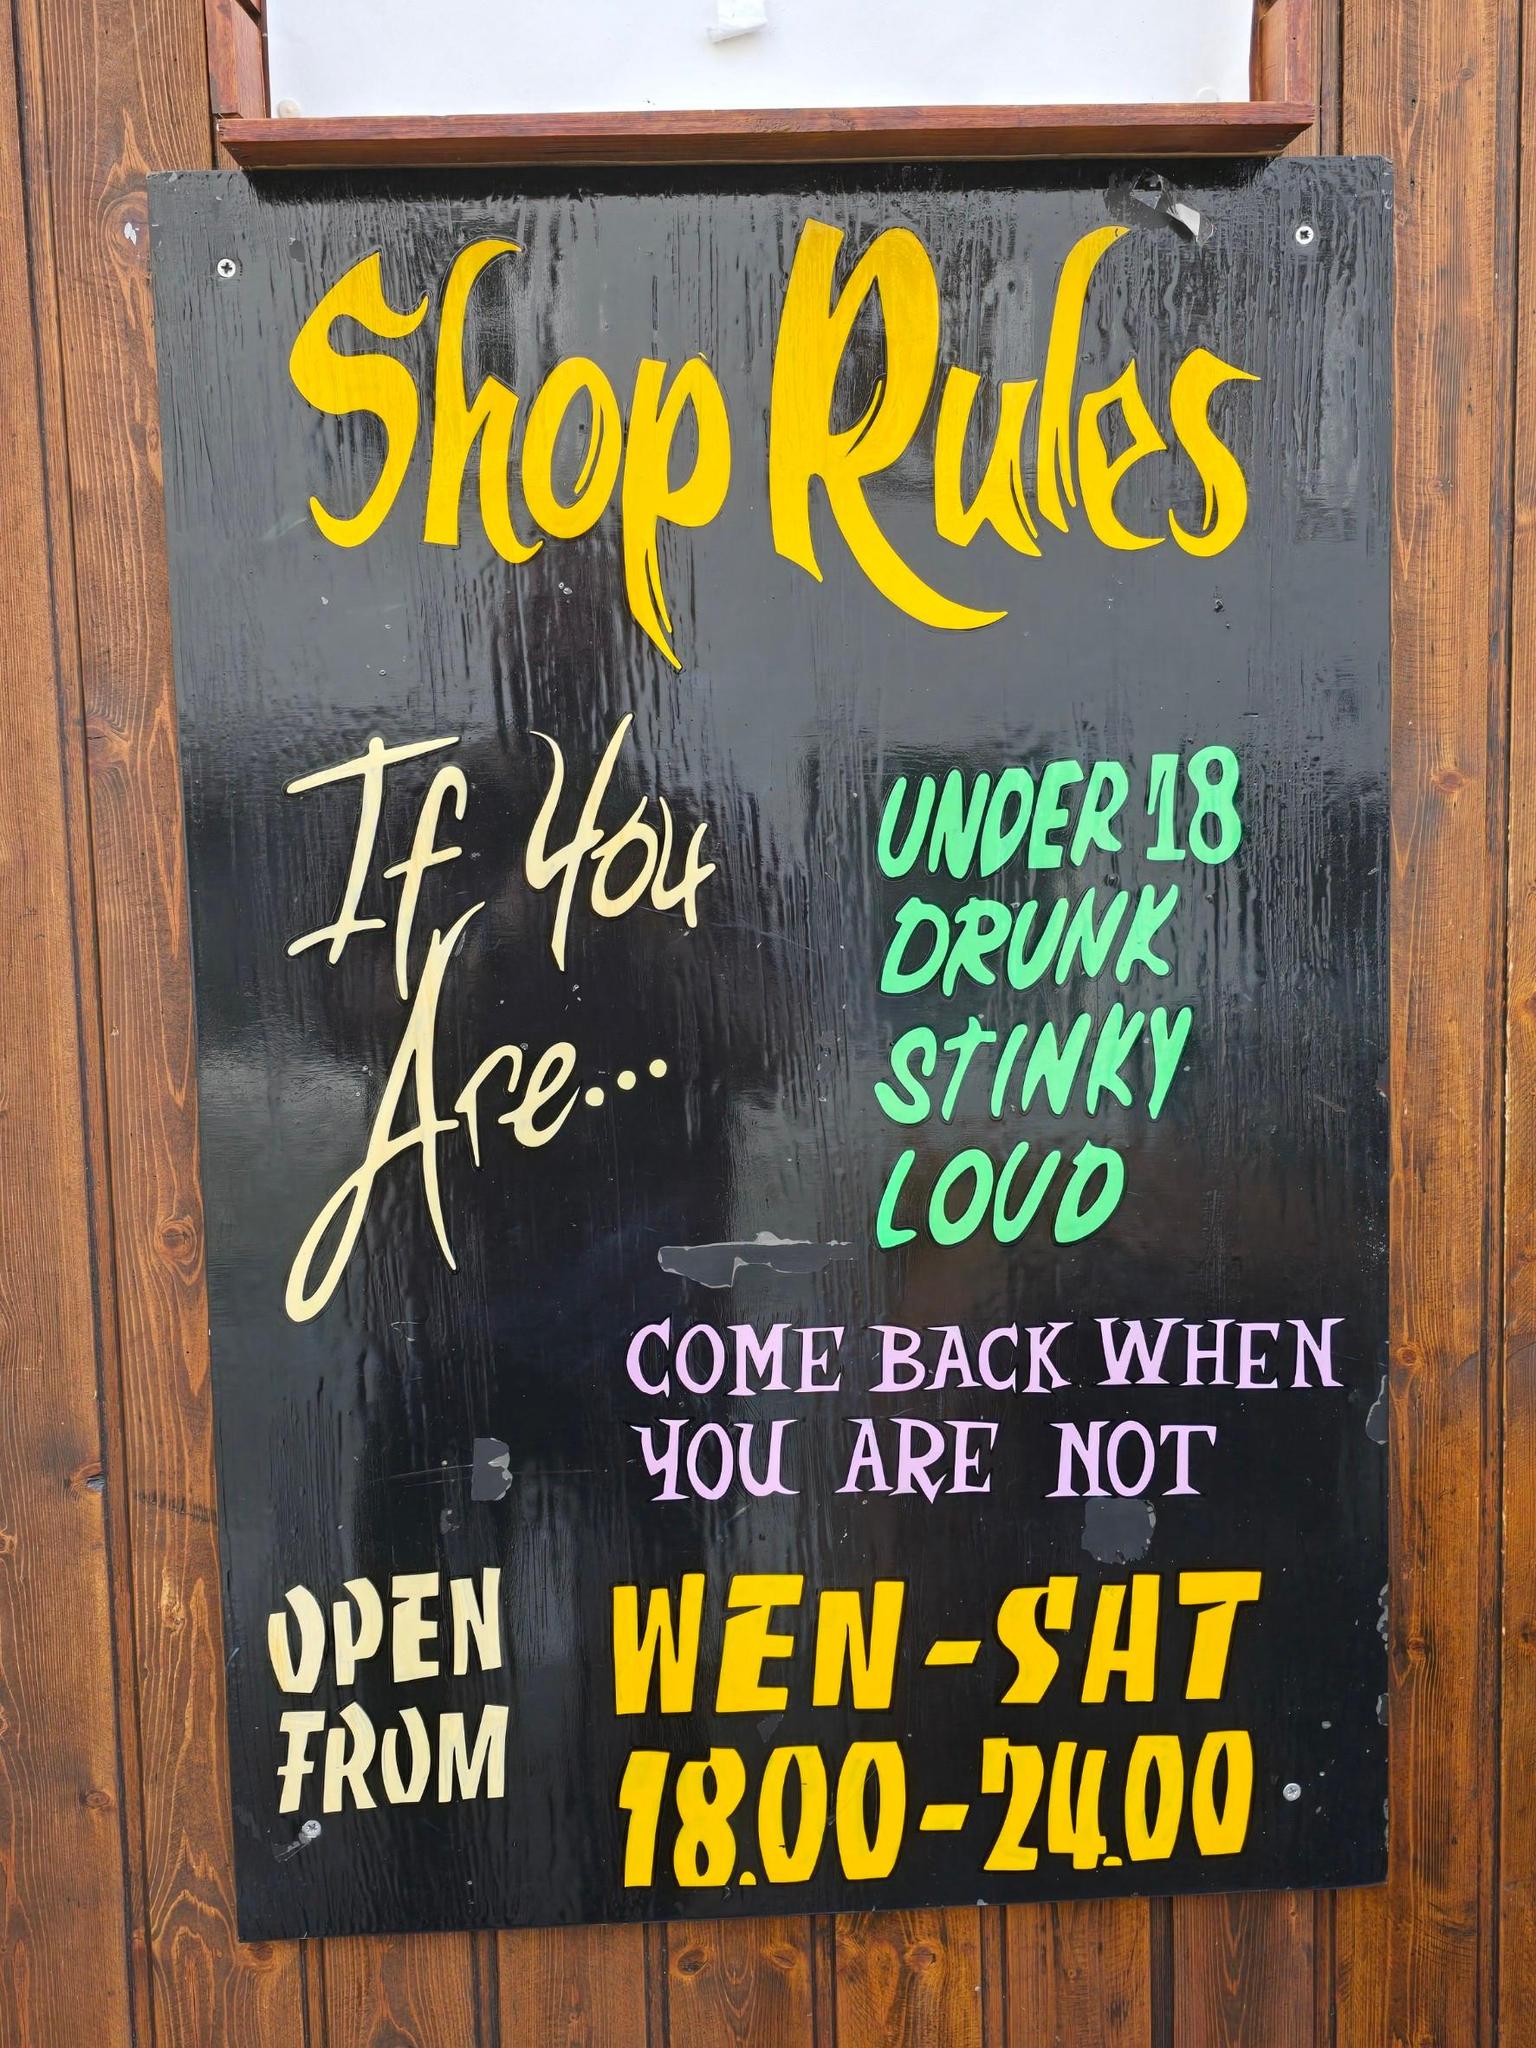 Shop Rules
If You
Are...
UNDER 18
DRUNK
STINKY
LOUD
COME BACK WHEN
YOU ARE NOT
OPEN
FROM
WEN-SAT
18.00-24.00